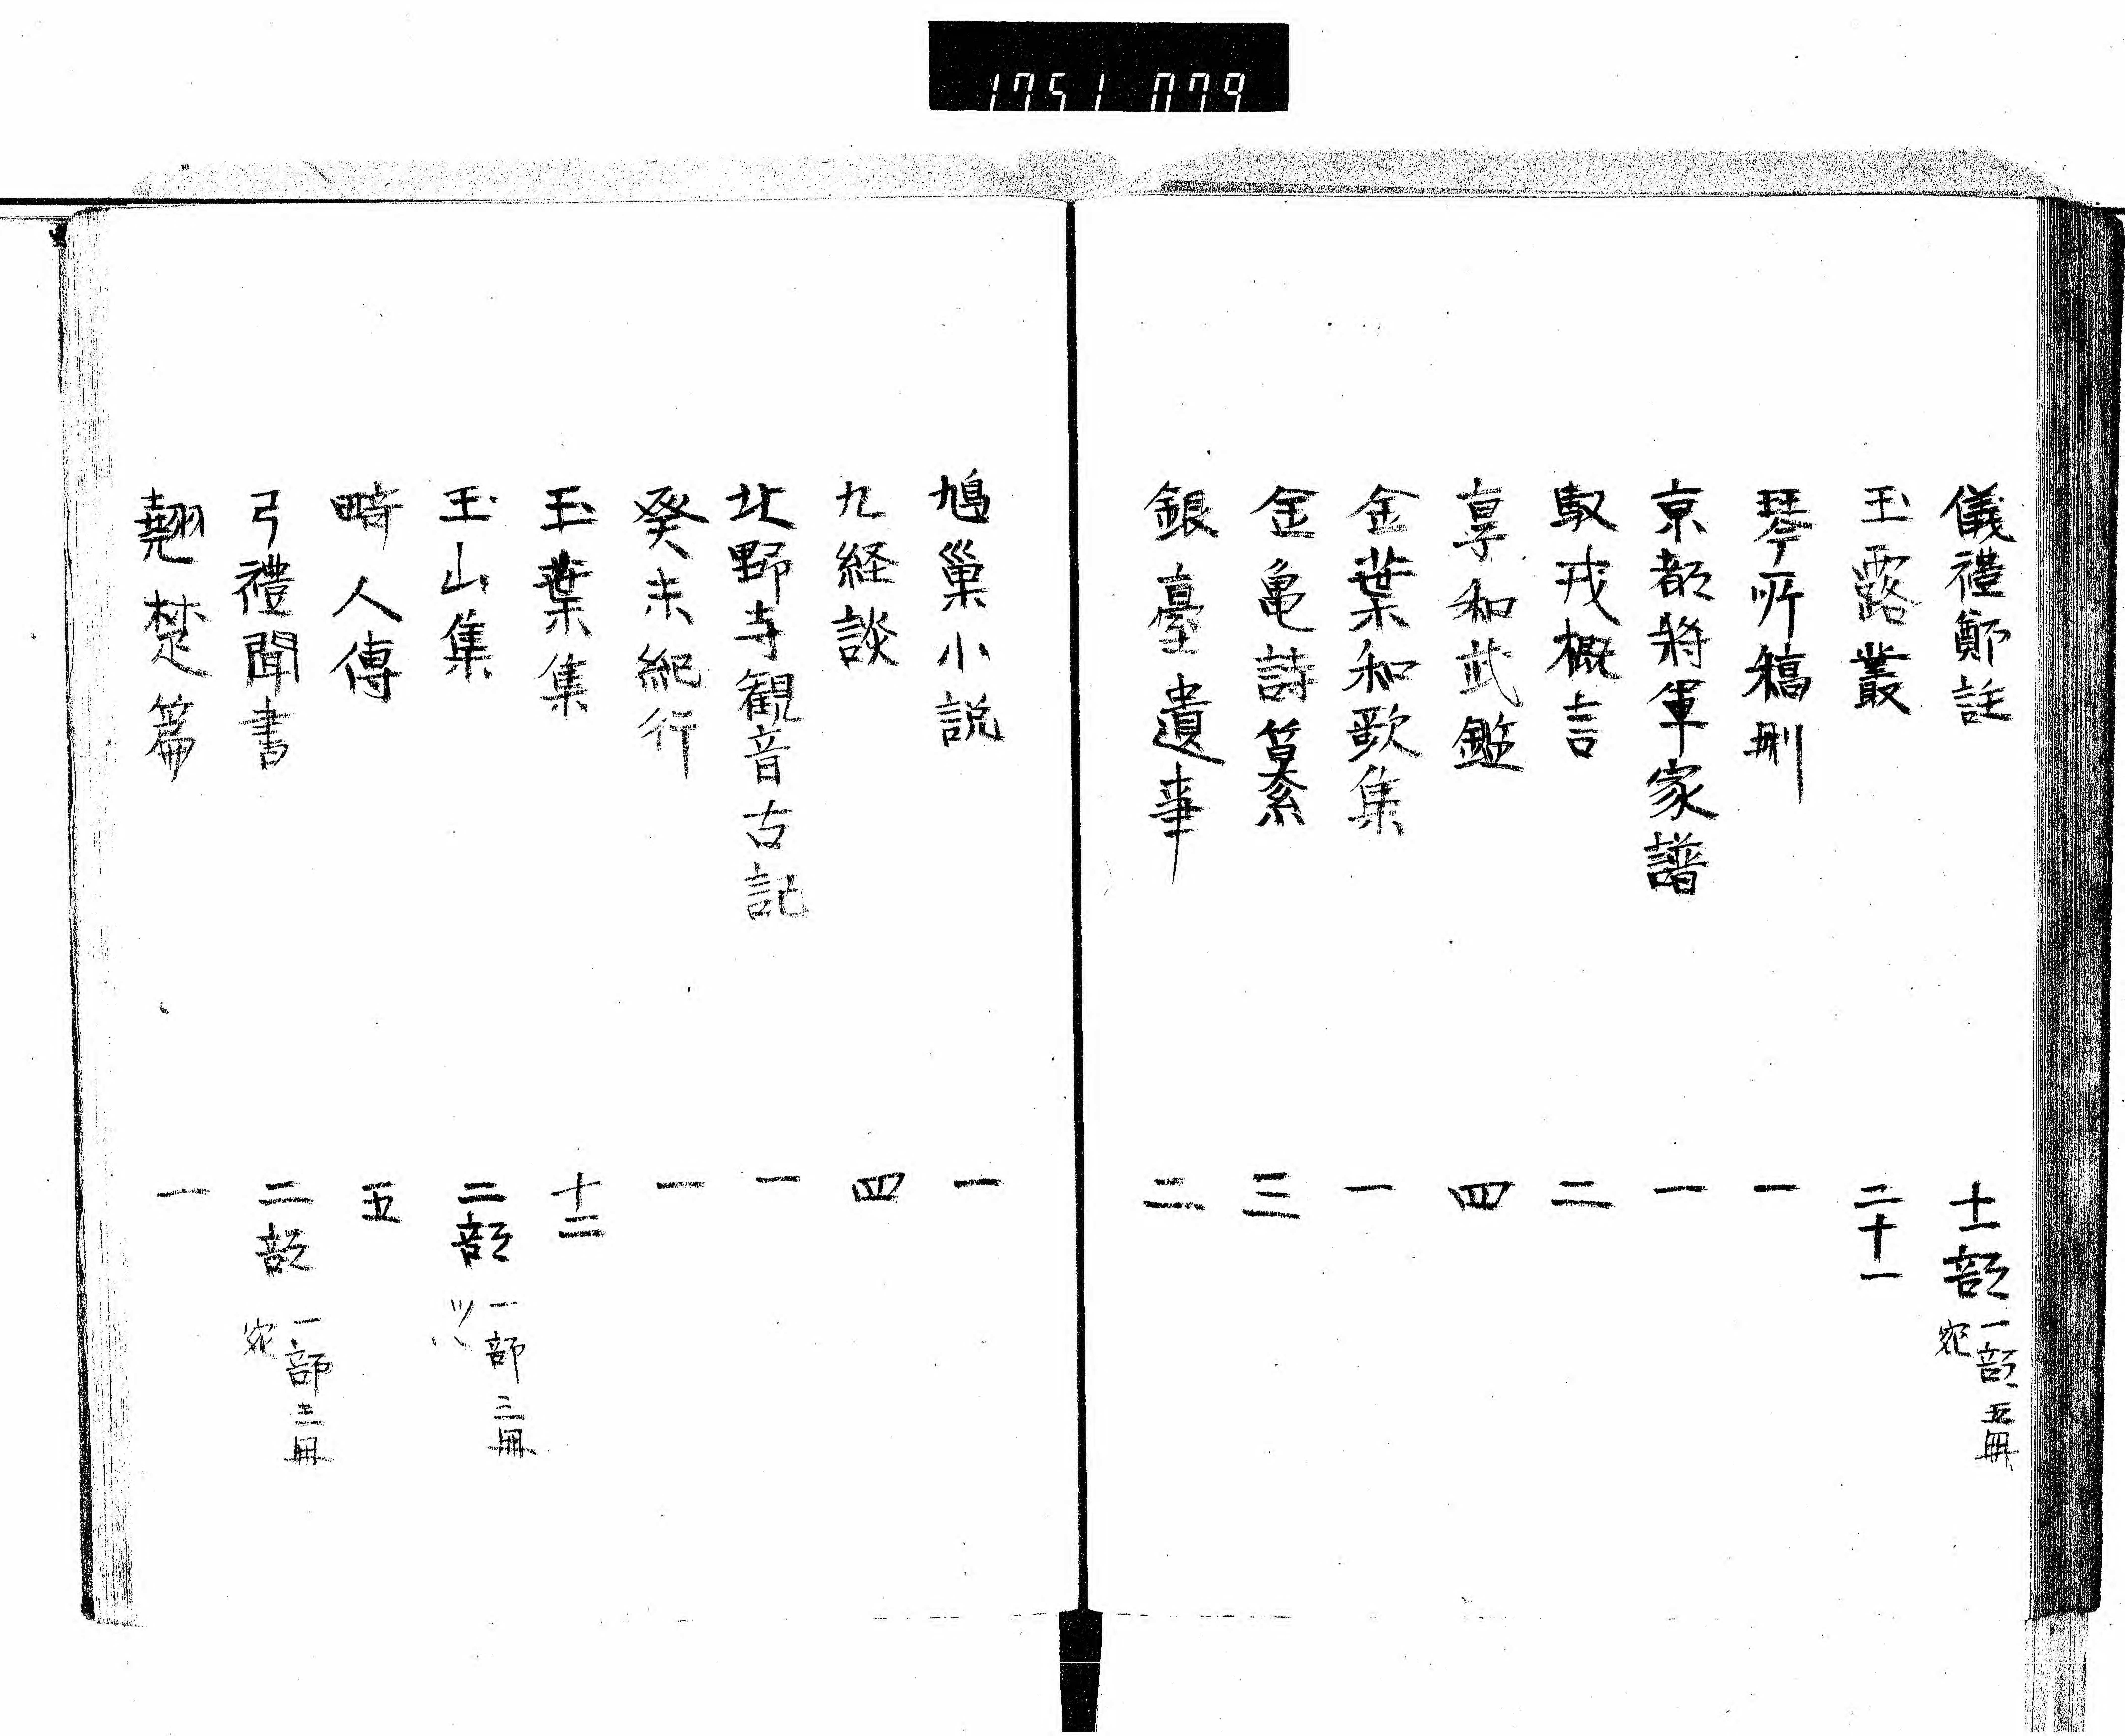 1751 079
儀禮鄭註 十一部 一部五冊宛
玉露叢 二十一
琴所稿刪 一
京都将軍家譜 一
馭戎概言 二
享和武鑑 四
金葉和歌集 一
金亀詩纂 三
銀臺遺事 二
鳩巣小説 一
九経談 四
北野寺観音古記 一
癸未紀行 一
玉葉集 十二
玉山集 二部 一部三冊ツヽ
畸人傳 五
弓禮聞書 二部 一部三冊宛
翹楚篇 一